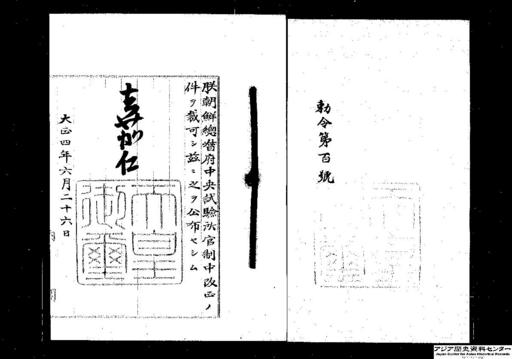 勅令第百號
朕朝鮮總督府中央試驗所官制中改正ノ
件ヲ裁可シ茲ニ之ヲ公布セシム
嘉仁
天皇御璽
大正四年六月二十六日
アジア歴史資料センター
Japan Center for Asian Historical Records